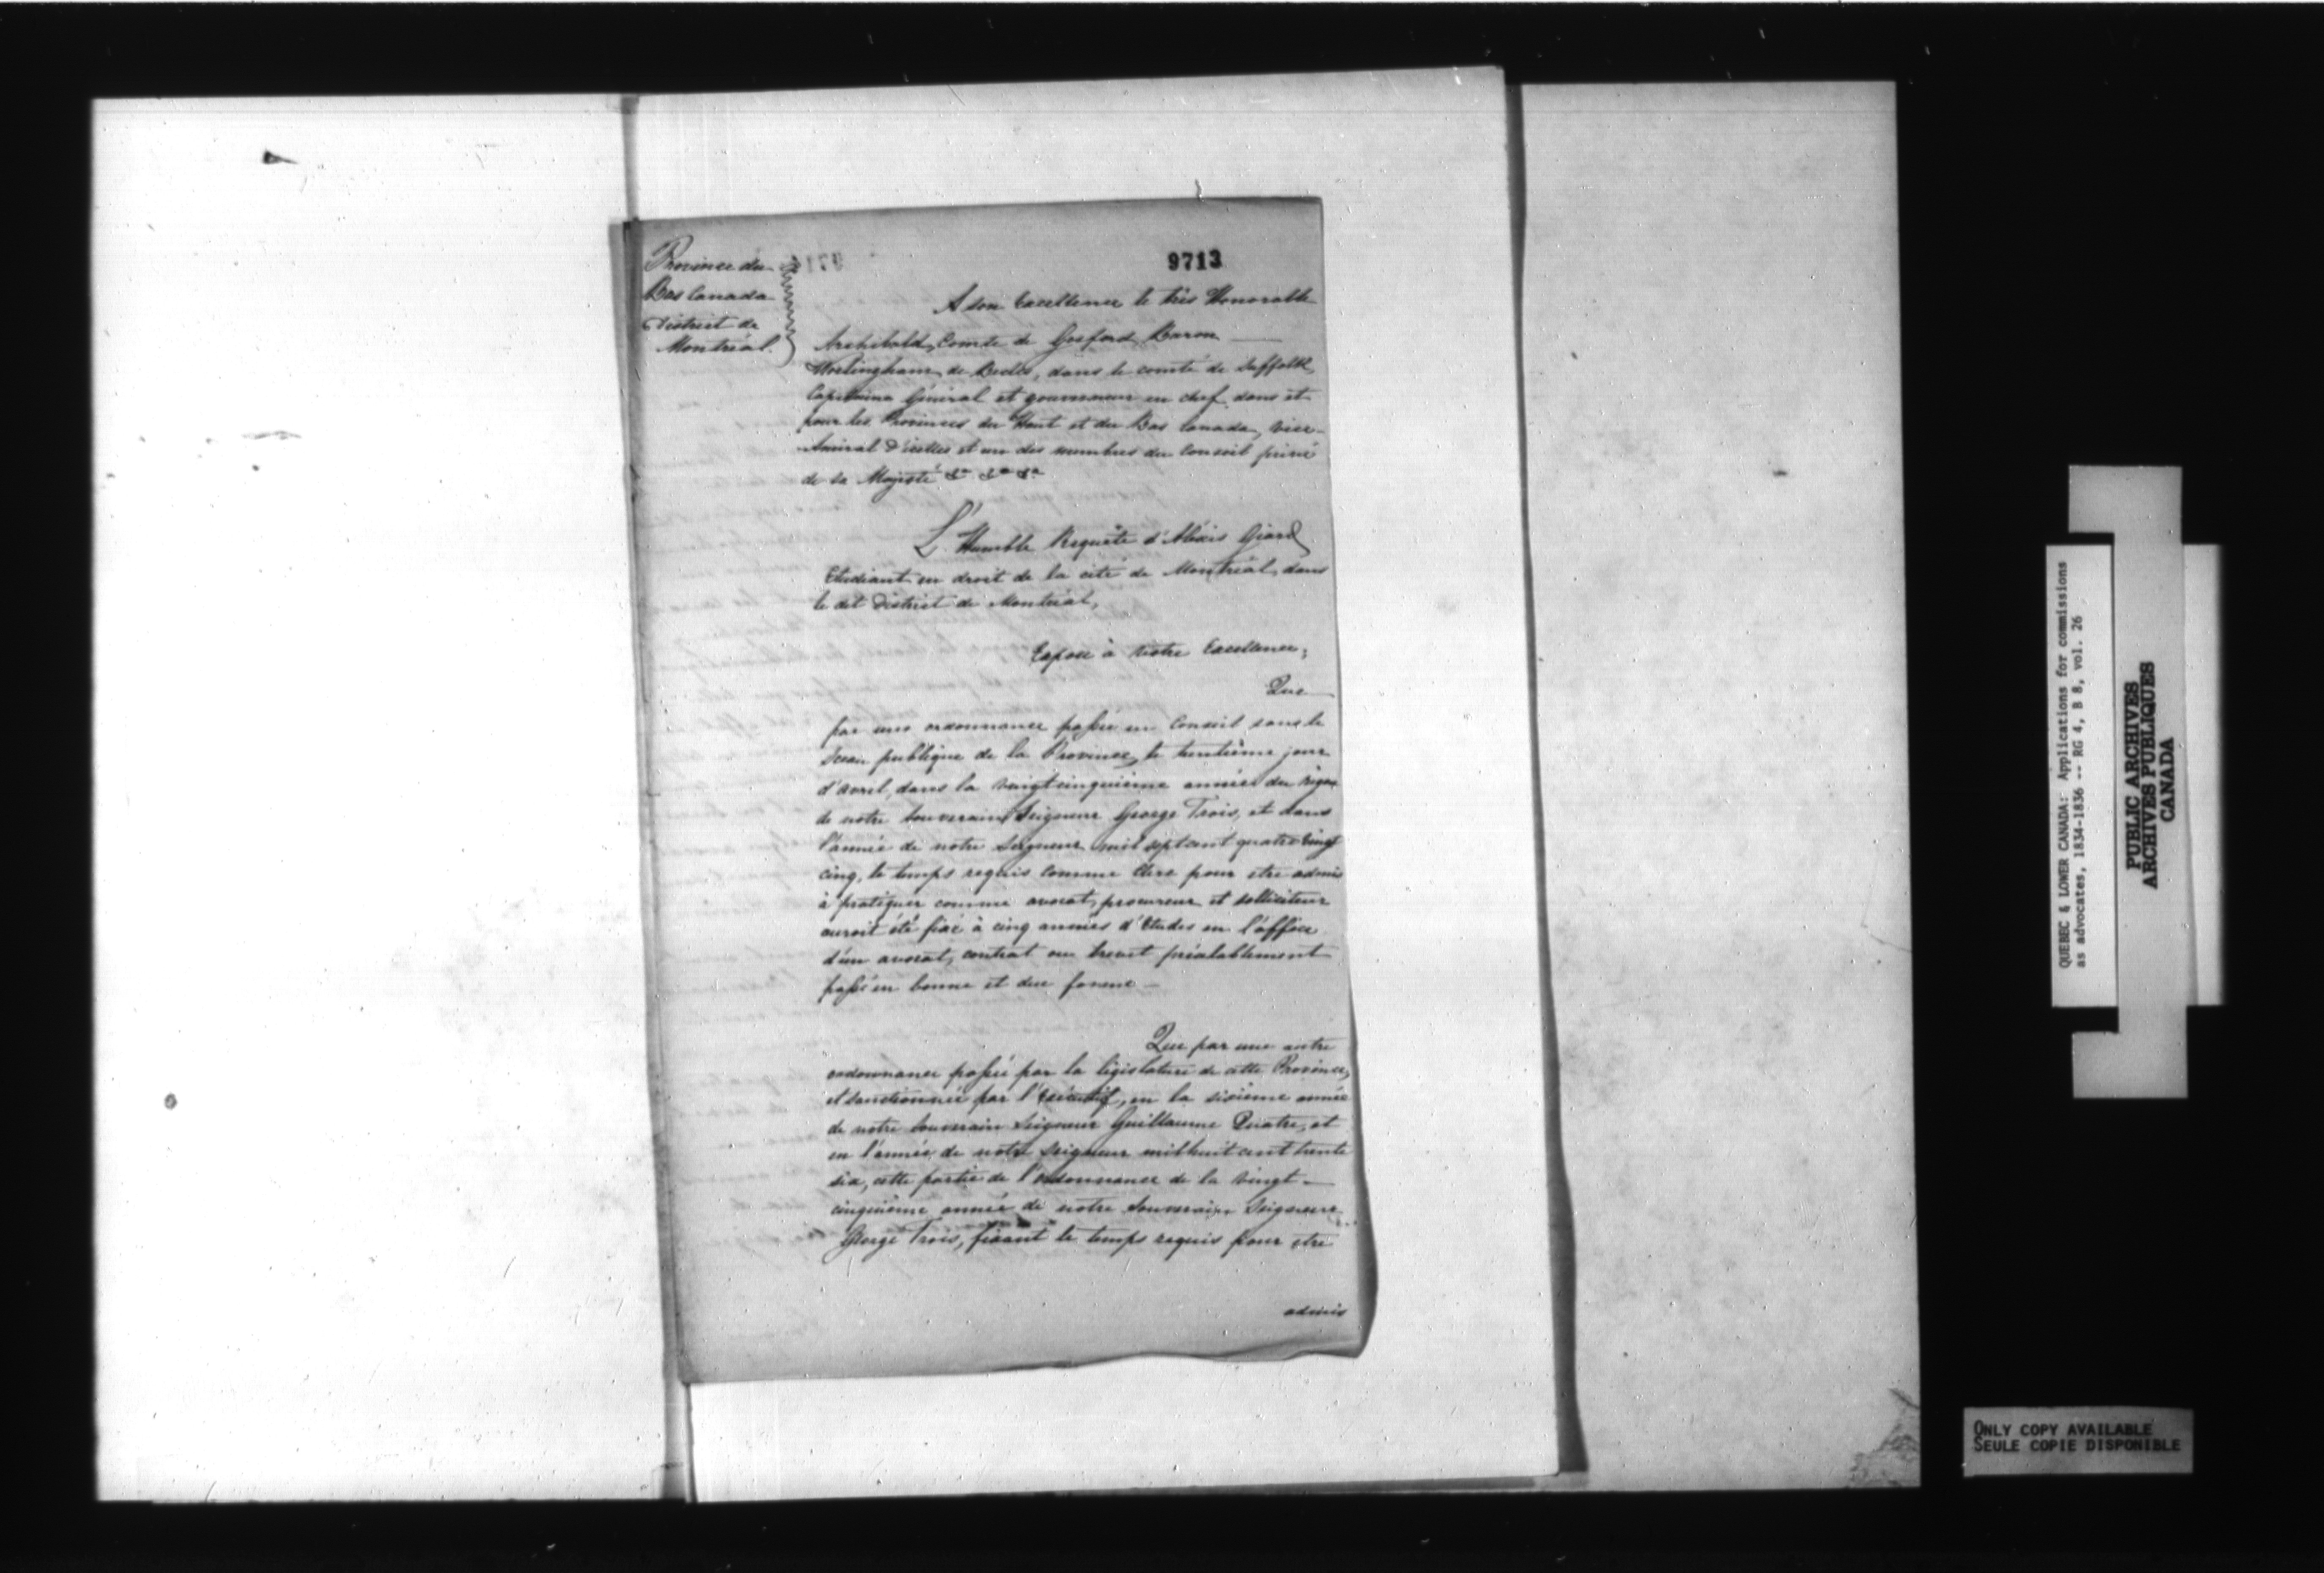 9713
Province du
Bas Canada
District de
Montréal.
A Son Excellence le très Honorable
Archibald, Comte de Gosford, Baron
Worlingham de Beccles, dans le comté de Suffolk,
Capitaine Général et gouverneur en chef dans et
pour les Provinces du Haut et du Bas Canada, Vice-
Amiral d'icelles et un des membres du Conseil privé
de sa Majesté &a &a &a
L'Humble Requête d'Aléxis Girard
Etudiant en droit de la cité de Montréal, dans
le dit District de Montréal,
Expose à Votre Excellence;
Que
par une ordonnance passée en Conseil sous le
Sceau publique de la Province, le trentième jour
d'avril, dans la vingt cinquième année du règne
de notre Souverain Seigneur George Trois, et dans
l'année de notre Seigneur mil sept cent quatre vingt
cinq, le temps requis comme Clerc pour être admis
à pratiquer comme avocat, procureur et solliciteur
auroit été fixé à cinq années d'Etudes en l'office
d'un avocat, contrat ou brevet préalablement
passé en bonne et due forme —
Que par une autre
ordonnance passée par la législature de cette Province,
et sanctionnée par l'Exécutif, en la sixième année
de notre Souverain Seigneur Guillaume Quatre, et
en l'année de notre Seigneur mil huit cent trente
six, cette partie de l'ordonnance de la vingt-
cinquième année de notre Souverain Seigneur
George Trois, fixant le temps requis pour être
admis
QUEBEC & LOWER CANADA: Applications for commissions
as advocates, 1834-1836 -- RG 4, B 8, vol. 26
PUBLIC ARCHIVES
ARCHIVES PUBLIQUES
CANADA
ONLY COPY AVAILABLE
SEULE COPIE DISPONIBLE